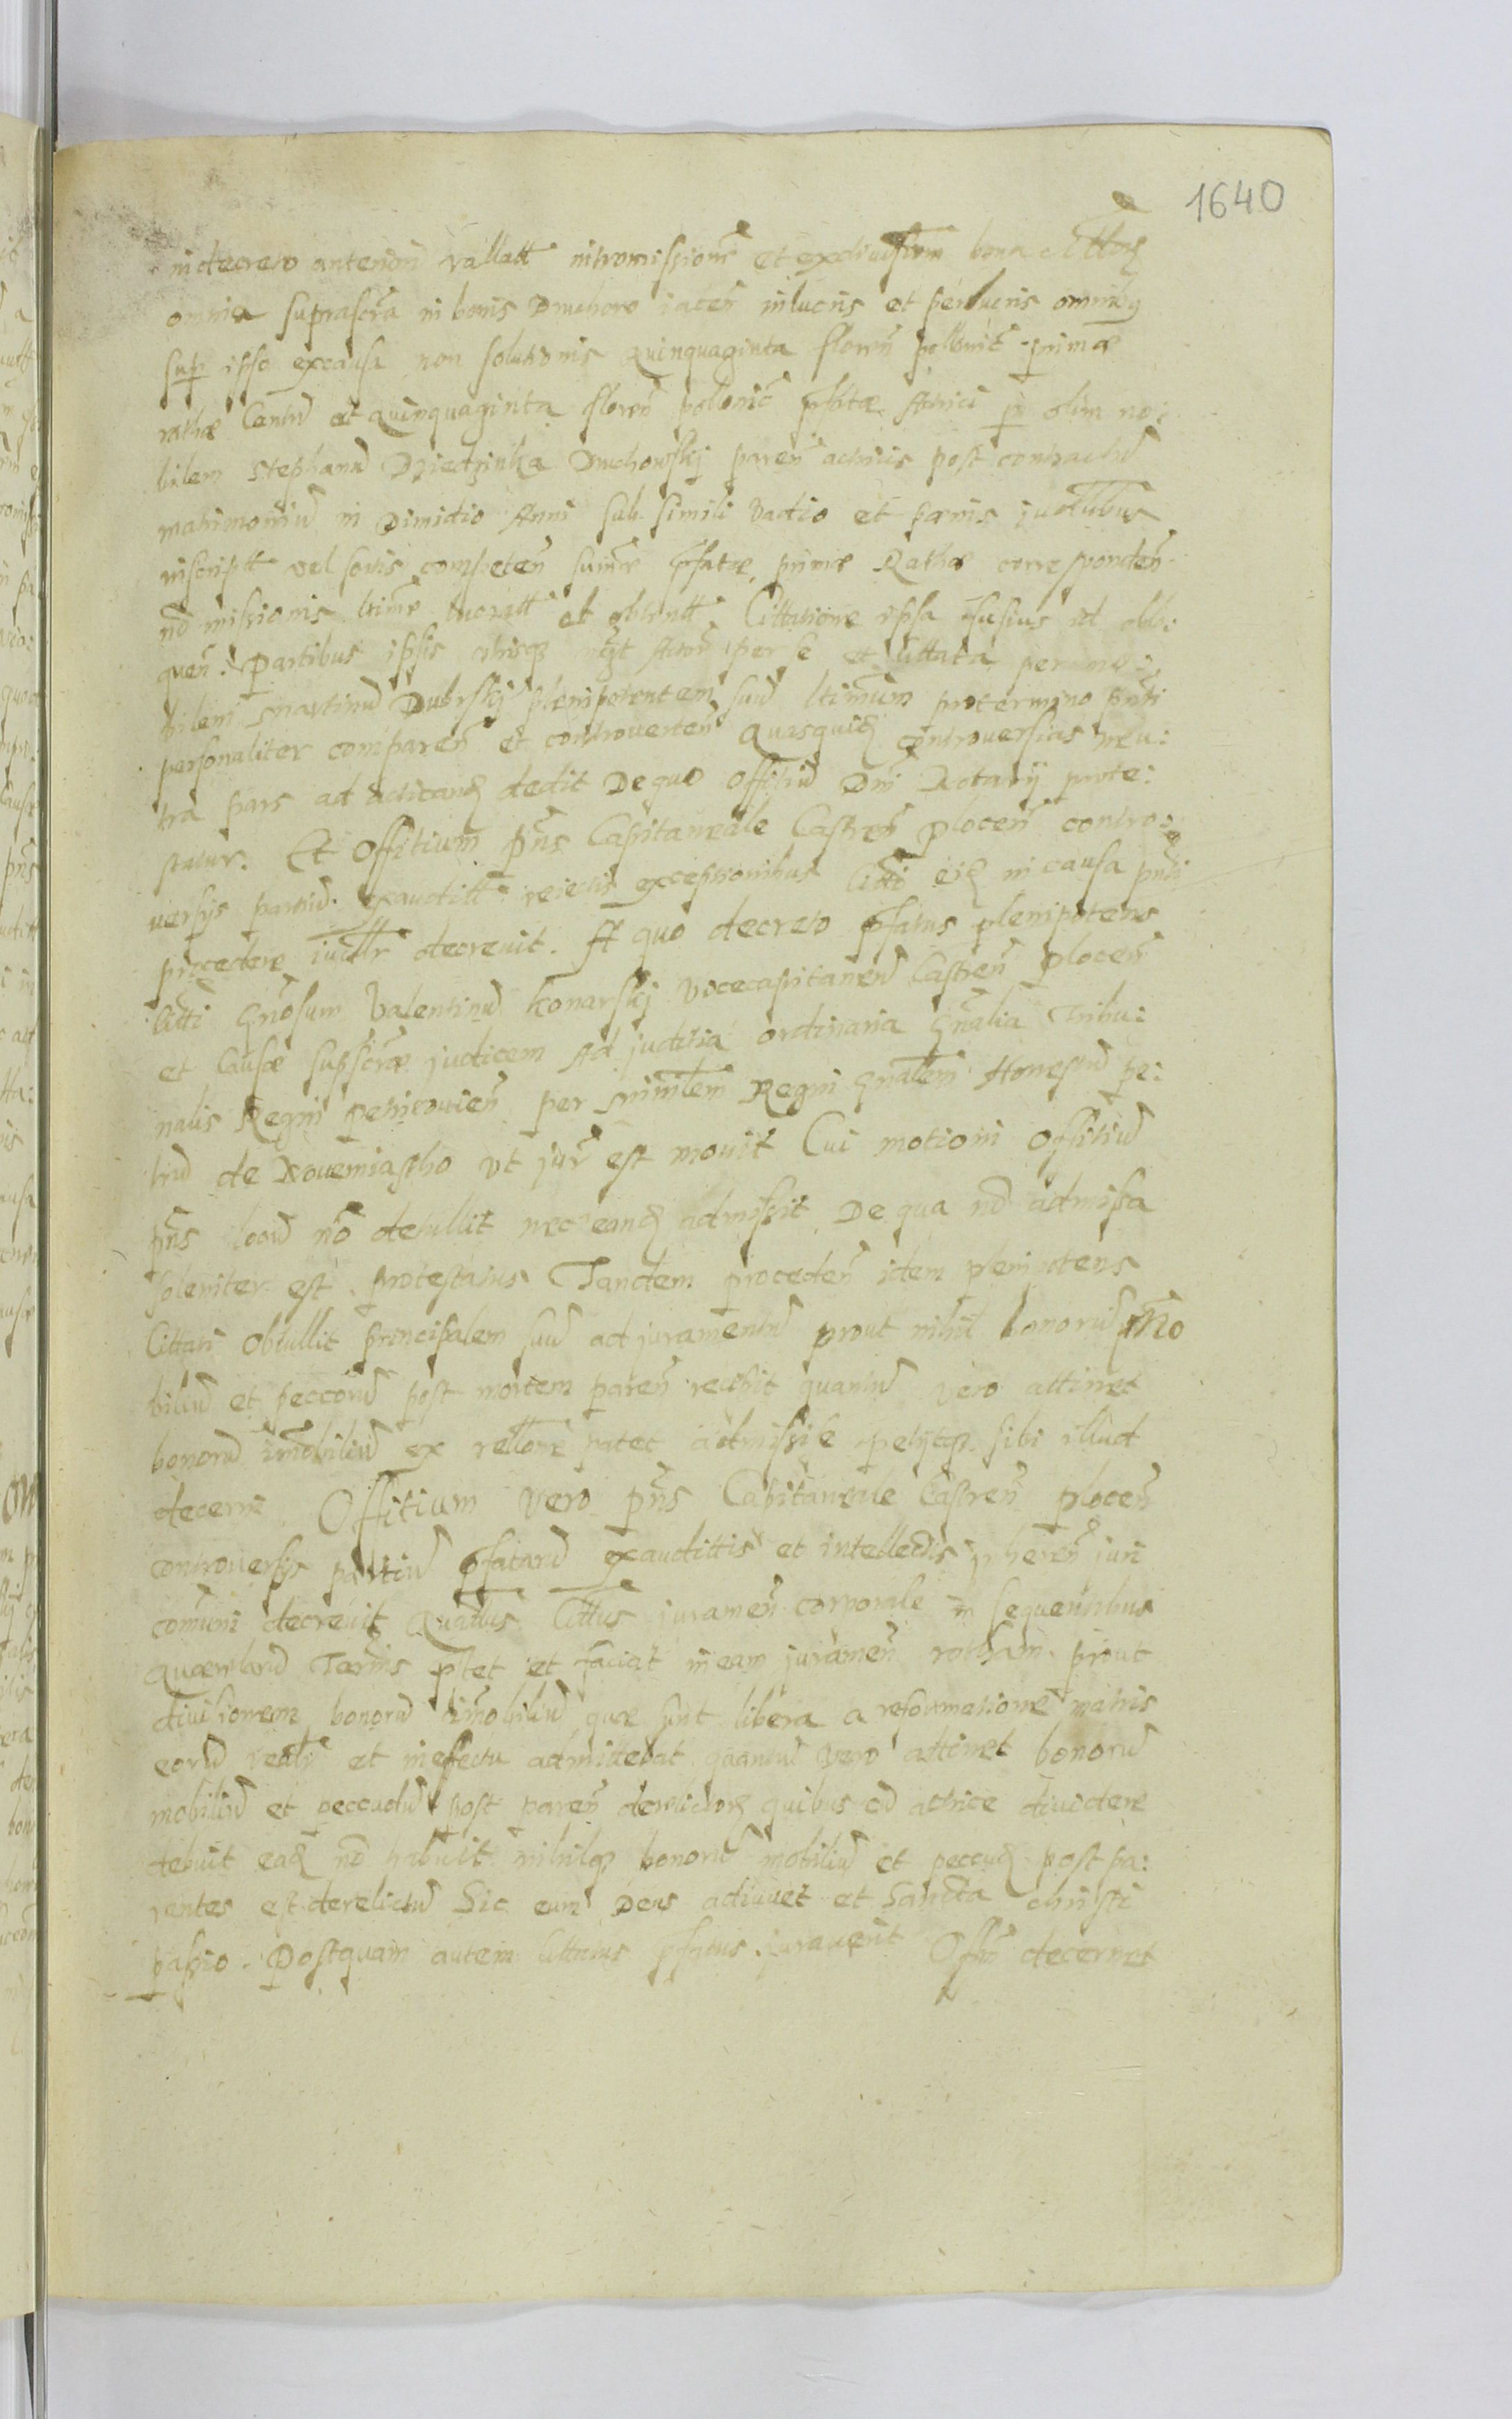 1640
in decreto anteriori vallatt intromissione et exdivision bona Cittoꝝ
omnia suprascra in bonis Druchowo iacen in lucris et per lucris omnibꝫ
sup ipso ex causa non solutionis Quinquaginta floren polonic primæ
rathæ Centu et Quinquaginta floren polonic Actrici p olim no:
bilem Stephanu Dziedzinka Druchowskj paren actricis post contractu
matrimoniu in Dimidio Anni sub simili vadio et pænis
inscriptt vel sortis competen summæ pfatæ primæ Rathæ corresponden
missionis ltime lucratt et obtentt Cittatione ipsa fusius id obli:
quen. Partibus ipsis utrisqꝫ per se et Cittata per nno:
bilem Martinu Dubrskj plenipotentem suu ltimum pro termino pnti
personaliter comparen et controverten Quasquidꝫ controversias neu:
tra pars ad acticandꝫ dedit De quo Offitiu Dni Notarij prote:
statur. Et Offitium pns Capitaneale Castren Plocen contro:
versijs partiu exauditt reiectis exceptionibus Citti eidꝫ in causa pnti
procedere decrevit. A quo decreto pfatus plenipotens
Citti Gnosum Valentinu Konarskj Vicecapitaneu Castren Plocen
et Causæ supscræ judicem Ad juditia ordinaria Gnalia Tribu:
nalis Regni Petricovien per Mnilem Regni Gnalem Honestu pe:
tru de Novemiastho ut jur est movit Cui motioni Offitiu
pns locu no detullit nec eandꝫ admissit De qua no admissa
solenniter est protestatus Tandem proceden idem plenipotens
Cittati Obtullit principalem suu ad juramentu prout nihil bonoru mo
biliu et peccoru post mortem paren recepit quantu vero attinet
bonoru immobiliu ex patet admissise petijtqꝫ sibi illud
decerni Offitium Vero pns Capitaneale Castren Plocen
controversijs partiu pfataru exaudittis et intellectis inheren iuri
comuni decrevit Quattus Cittus iuramen corporale in sequentibus
Querelaru Terminis pstet et faciat in eam juramen rotham. prout
divisionem bonoru imobiliu quæ sunt libera a reformatione matris
eoru realr et in effectu admittebat quantu vero attinet bonoru
mobiliu et peccudu post paren derelictorꝫ quibus cu actrice dividere
debuit eadꝫ no habuit nihilqꝫ bonoru mobiliu et peccudꝫ post pa:
rentes est derelictu Sic eum Deus adiuvet et Sancta christi
passio. Postquam autem Cittatus pfatus iuraverit Offm decernet